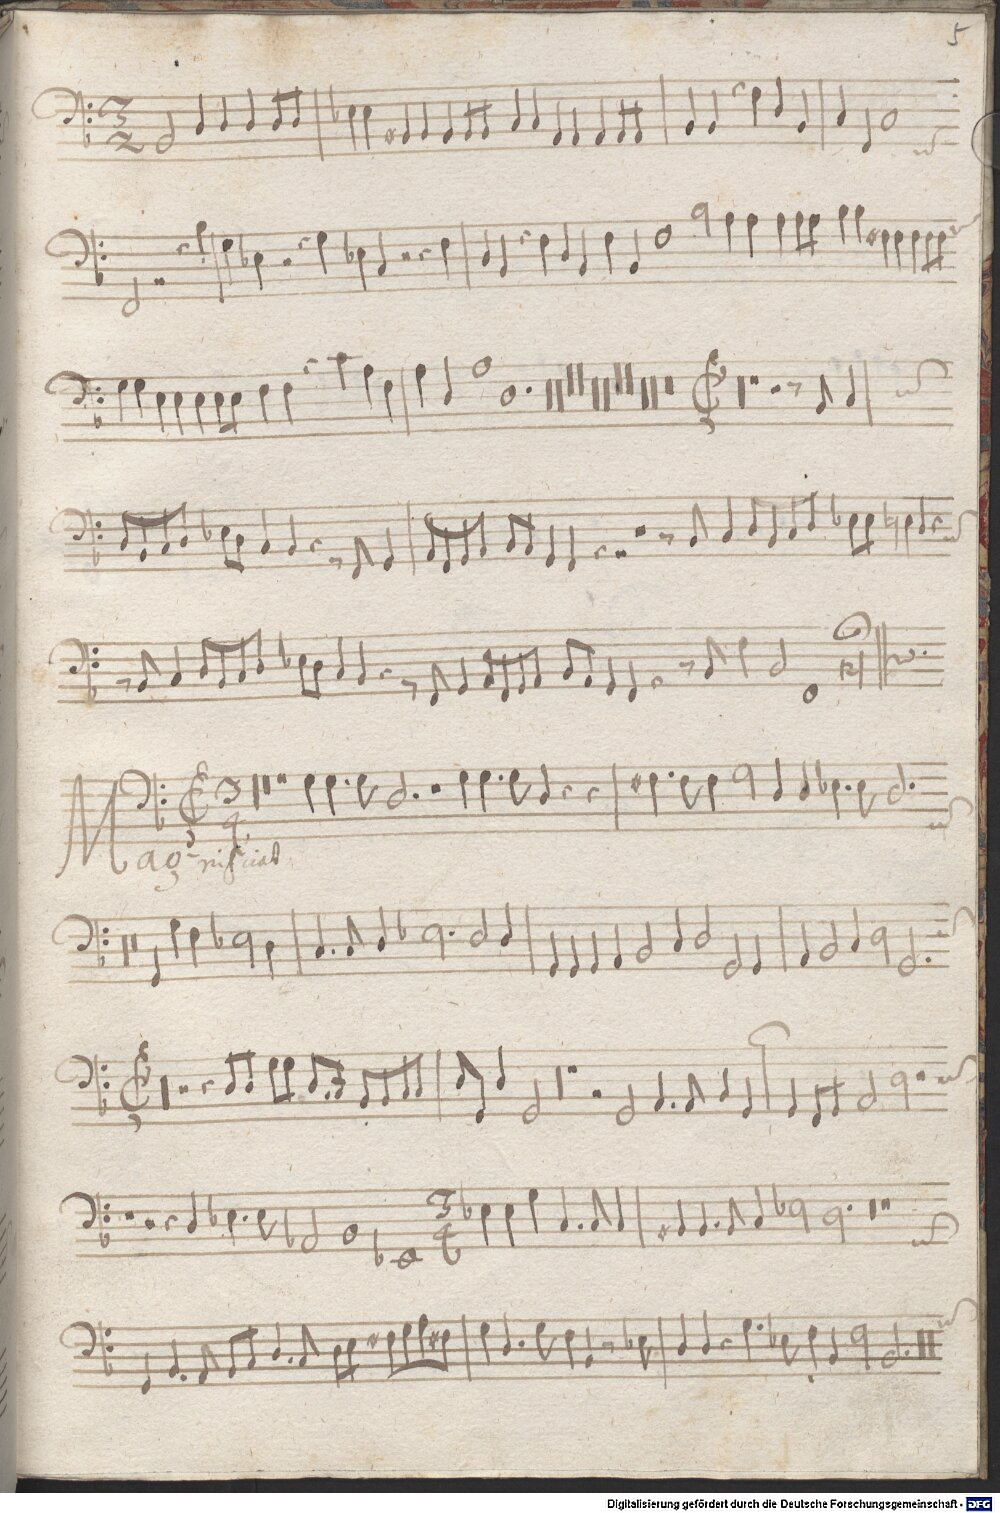 5
3
2
3
4
Mag-
nificat
3
4
Digitalisierung gefördert durch die Deutsche Forschungsgemeinschaft - DFG